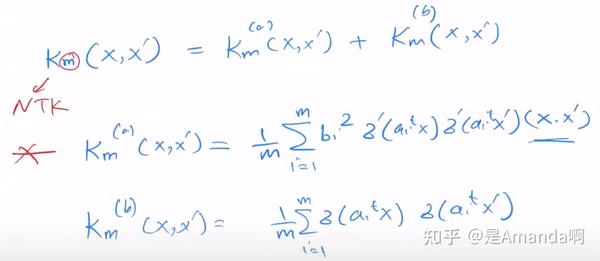 Km(x,x') = Km^(a)(x,x') + Km^(b)(x,x')
NTK
Km^(a)(x,x') = 1/m Σ_{i=1}^{m} bi^2 σ'(ai^t x) σ'(ai^t x') (x·x')
Km^(b)(x,x') = 1/m Σ_{i=1}^{m} σ(ai^t x) σ(ai^t x')
知乎 @是Amanda啊